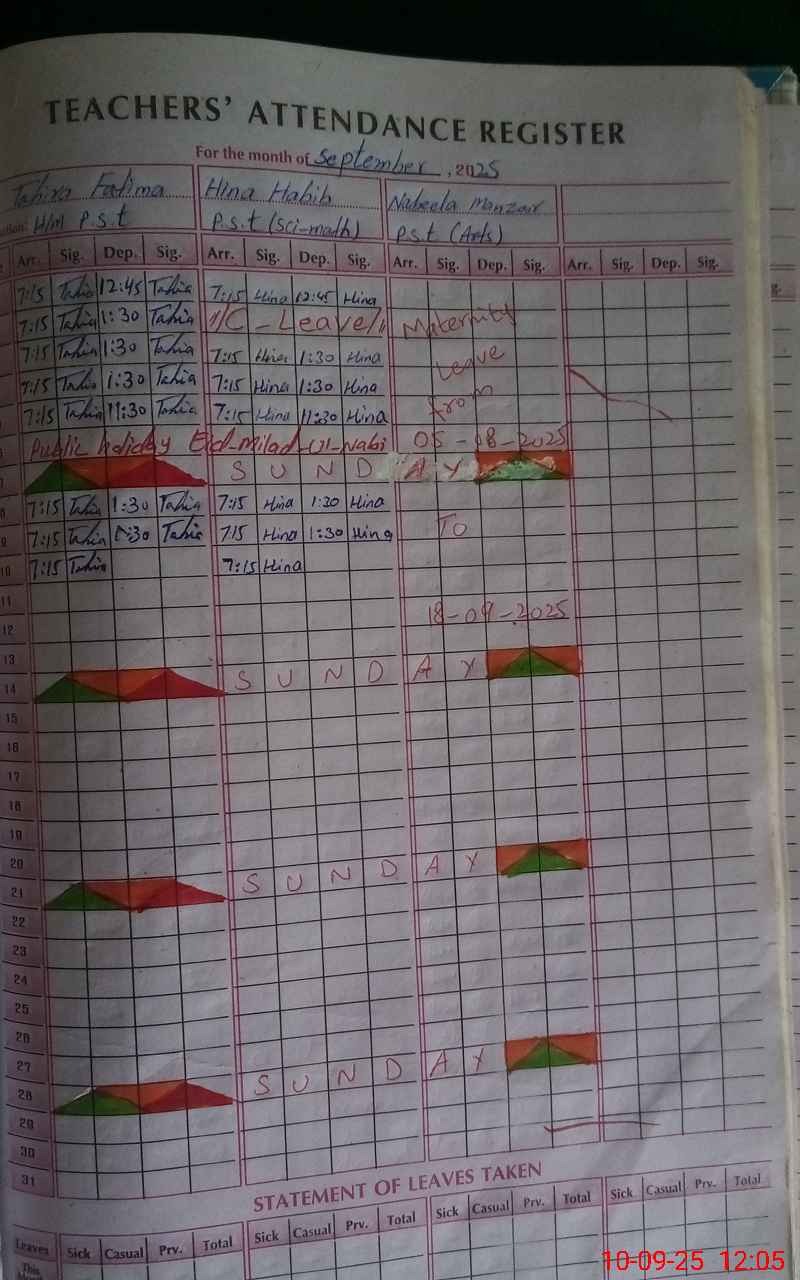 TEACHERS' ATTENDANCE REGISTER
For the month of September, 2025
Tahira Fatima Hina Habib Nabeela Manzoor
H/M P.S.t P.S.t (Sci-math) P.S.t (Arts)
Arr. Sig. Dep. Sig. Arr. Sig. Dep. Sig. Arr. Sig. Dep. Sig. Arr. Sig. Dep. Sig.
7:15 12:45 7:15 Hina 12:45 Hina
7:15 1:30 "/C-Leave/" Maternity
7:15 1:30 7:15 Hina 1:30 Hina Leave
7:15 1:30 7:15 Hina 1:30 Hina from
7:15 11:30 7:15 Hina 11:30 Hina
Public holiday Eid-Milad-ul-Nabi 05-08-2025
7 SUNDAY
8 7:15 1:30 7:15 Hina 1:30 Hina
9 7:15 1:30 7:15 Hina 1:30 Hina To
10 7:15 7:15 Hina
11
12 18-09-2025
13
14 SUNDAY
15
16
17
18
19
20
21 SUNDAY
22
23
24
25
26
27
28 SUNDAY
29
30
31
STATEMENT OF LEAVES TAKEN
Leaves Sick Casual Prv. Total Sick Casual Prv. Total Sick Casual Prv. Total Sick Casual Prv. Total
This
10-09-25 12:05